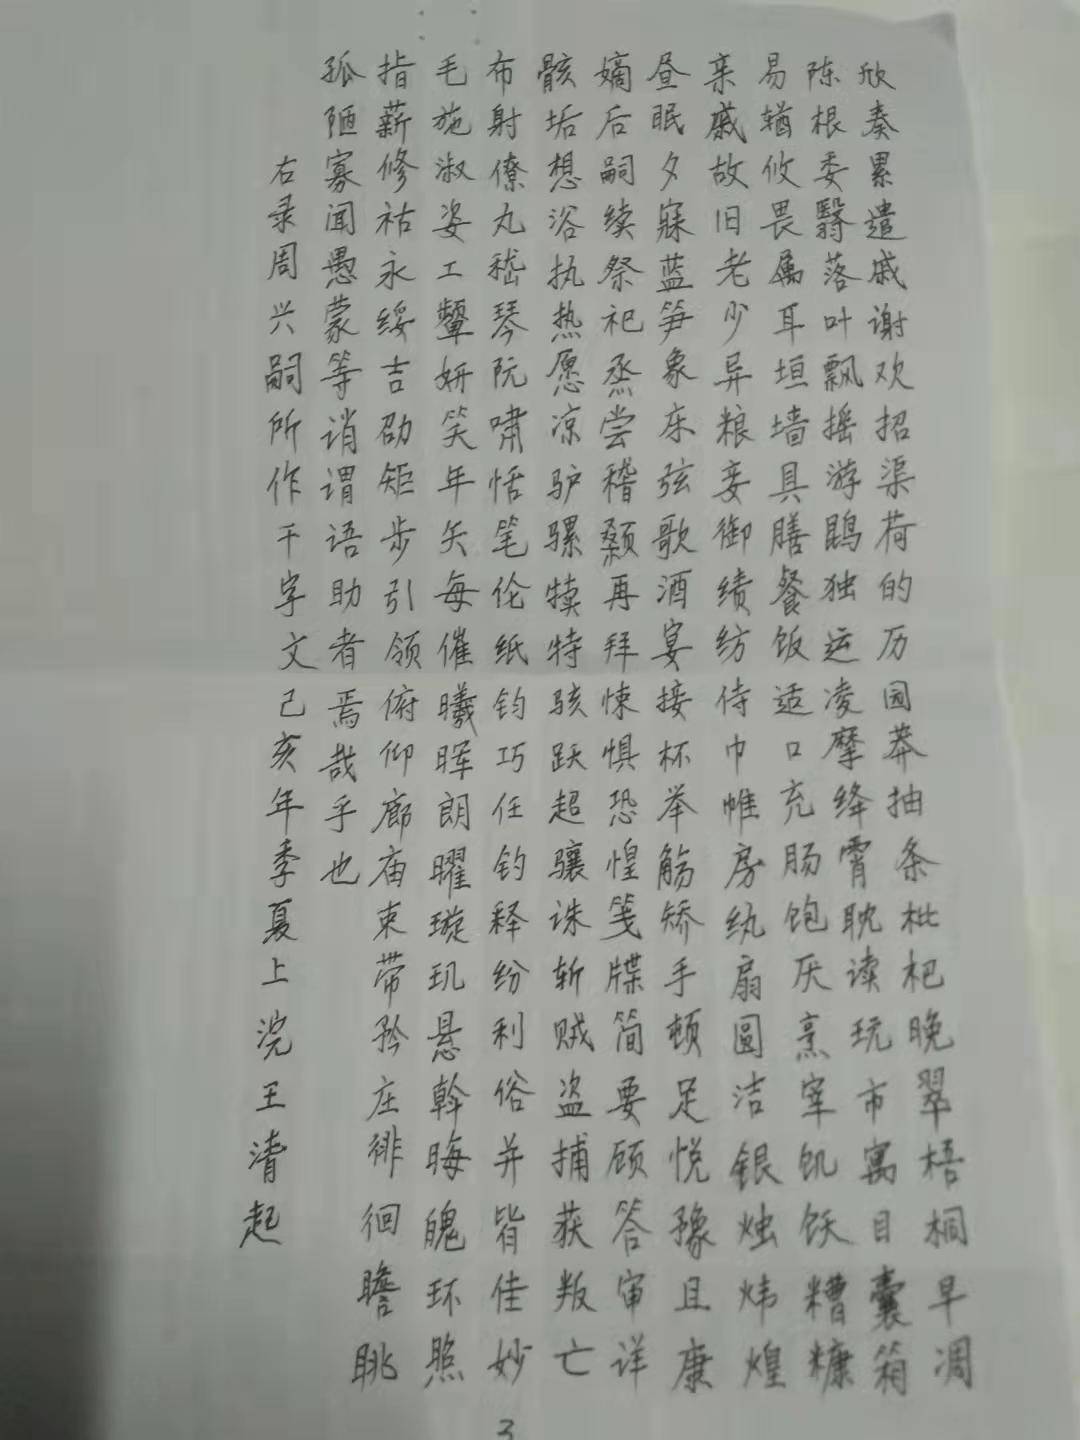 欣奏累遣戚谢欢招渠荷的历园莽抽条枇杷晚翠梧桐早凋
陈根委翳落叶飘摇游鹍独运凌摩绛霄耽读玩市寓目囊箱
易𬨎攸畏属耳垣墙具膳餐饭适口充肠饱厌烹宰饥饫糟糠
亲戚故旧老少异粮妾御绩纺侍巾帷房纨扇圆洁银烛炜煌
昼眠夕寐蓝笋象床弦歌酒宴接杯举觞矫手顿足悦豫且康
嫡后嗣续祭祀烝尝稽颡再拜悚惧恐惶笺牒简要顾答审详
骸垢想浴执热愿凉驴骡犊特骇跃超骧诛斩贼盗捕获叛亡
布射僚丸嵇琴阮啸恬笔伦纸钧巧任钓释纷利俗并皆佳妙
毛施淑姿工颦妍笑年矢每催曦晖朗曜璇玑悬斡晦魄环照
指薪修祜永绥吉劭矩步引领俯仰廊庙束带矜庄徘徊瞻眺
孤陋寡闻愚蒙等诮谓语助者焉哉乎也
右录周兴嗣所作千字文己亥年季夏上浣王清起
3